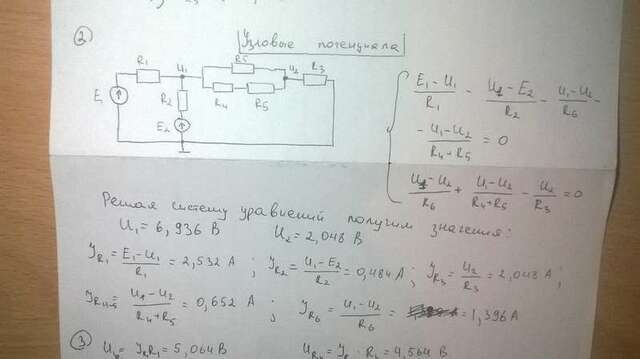 ② Узловые потенциала
R1 U1 R5 U2 R3
R2 R4 R5
E1
E2
(E1 - U1)/R1 - (U1 - E2)/R2 - (U1 - U2)/R6 -
- (U1 - U2)/(R4 + R5) = 0
(U1 - U2)/R6 + (U1 - U2)/(R4 + R5) - U2/R3 = 0
Решая систему уравнений получим значения:
U1 = 6,936 В U2 = 2,048 В
JR1 = (E1 - U1)/R1 = 2,532 А ; JR2 = (U1 - E2)/R2 = 0,484 А ; JR3 = U2/R3 = 2,048 А ;
JR45 = (U1 - U2)/(R4 + R5) = 0,652 А ; JR6 = (U1 - U2)/R6 = = 1,396 А
③ = 5,064 В = 4,564 В